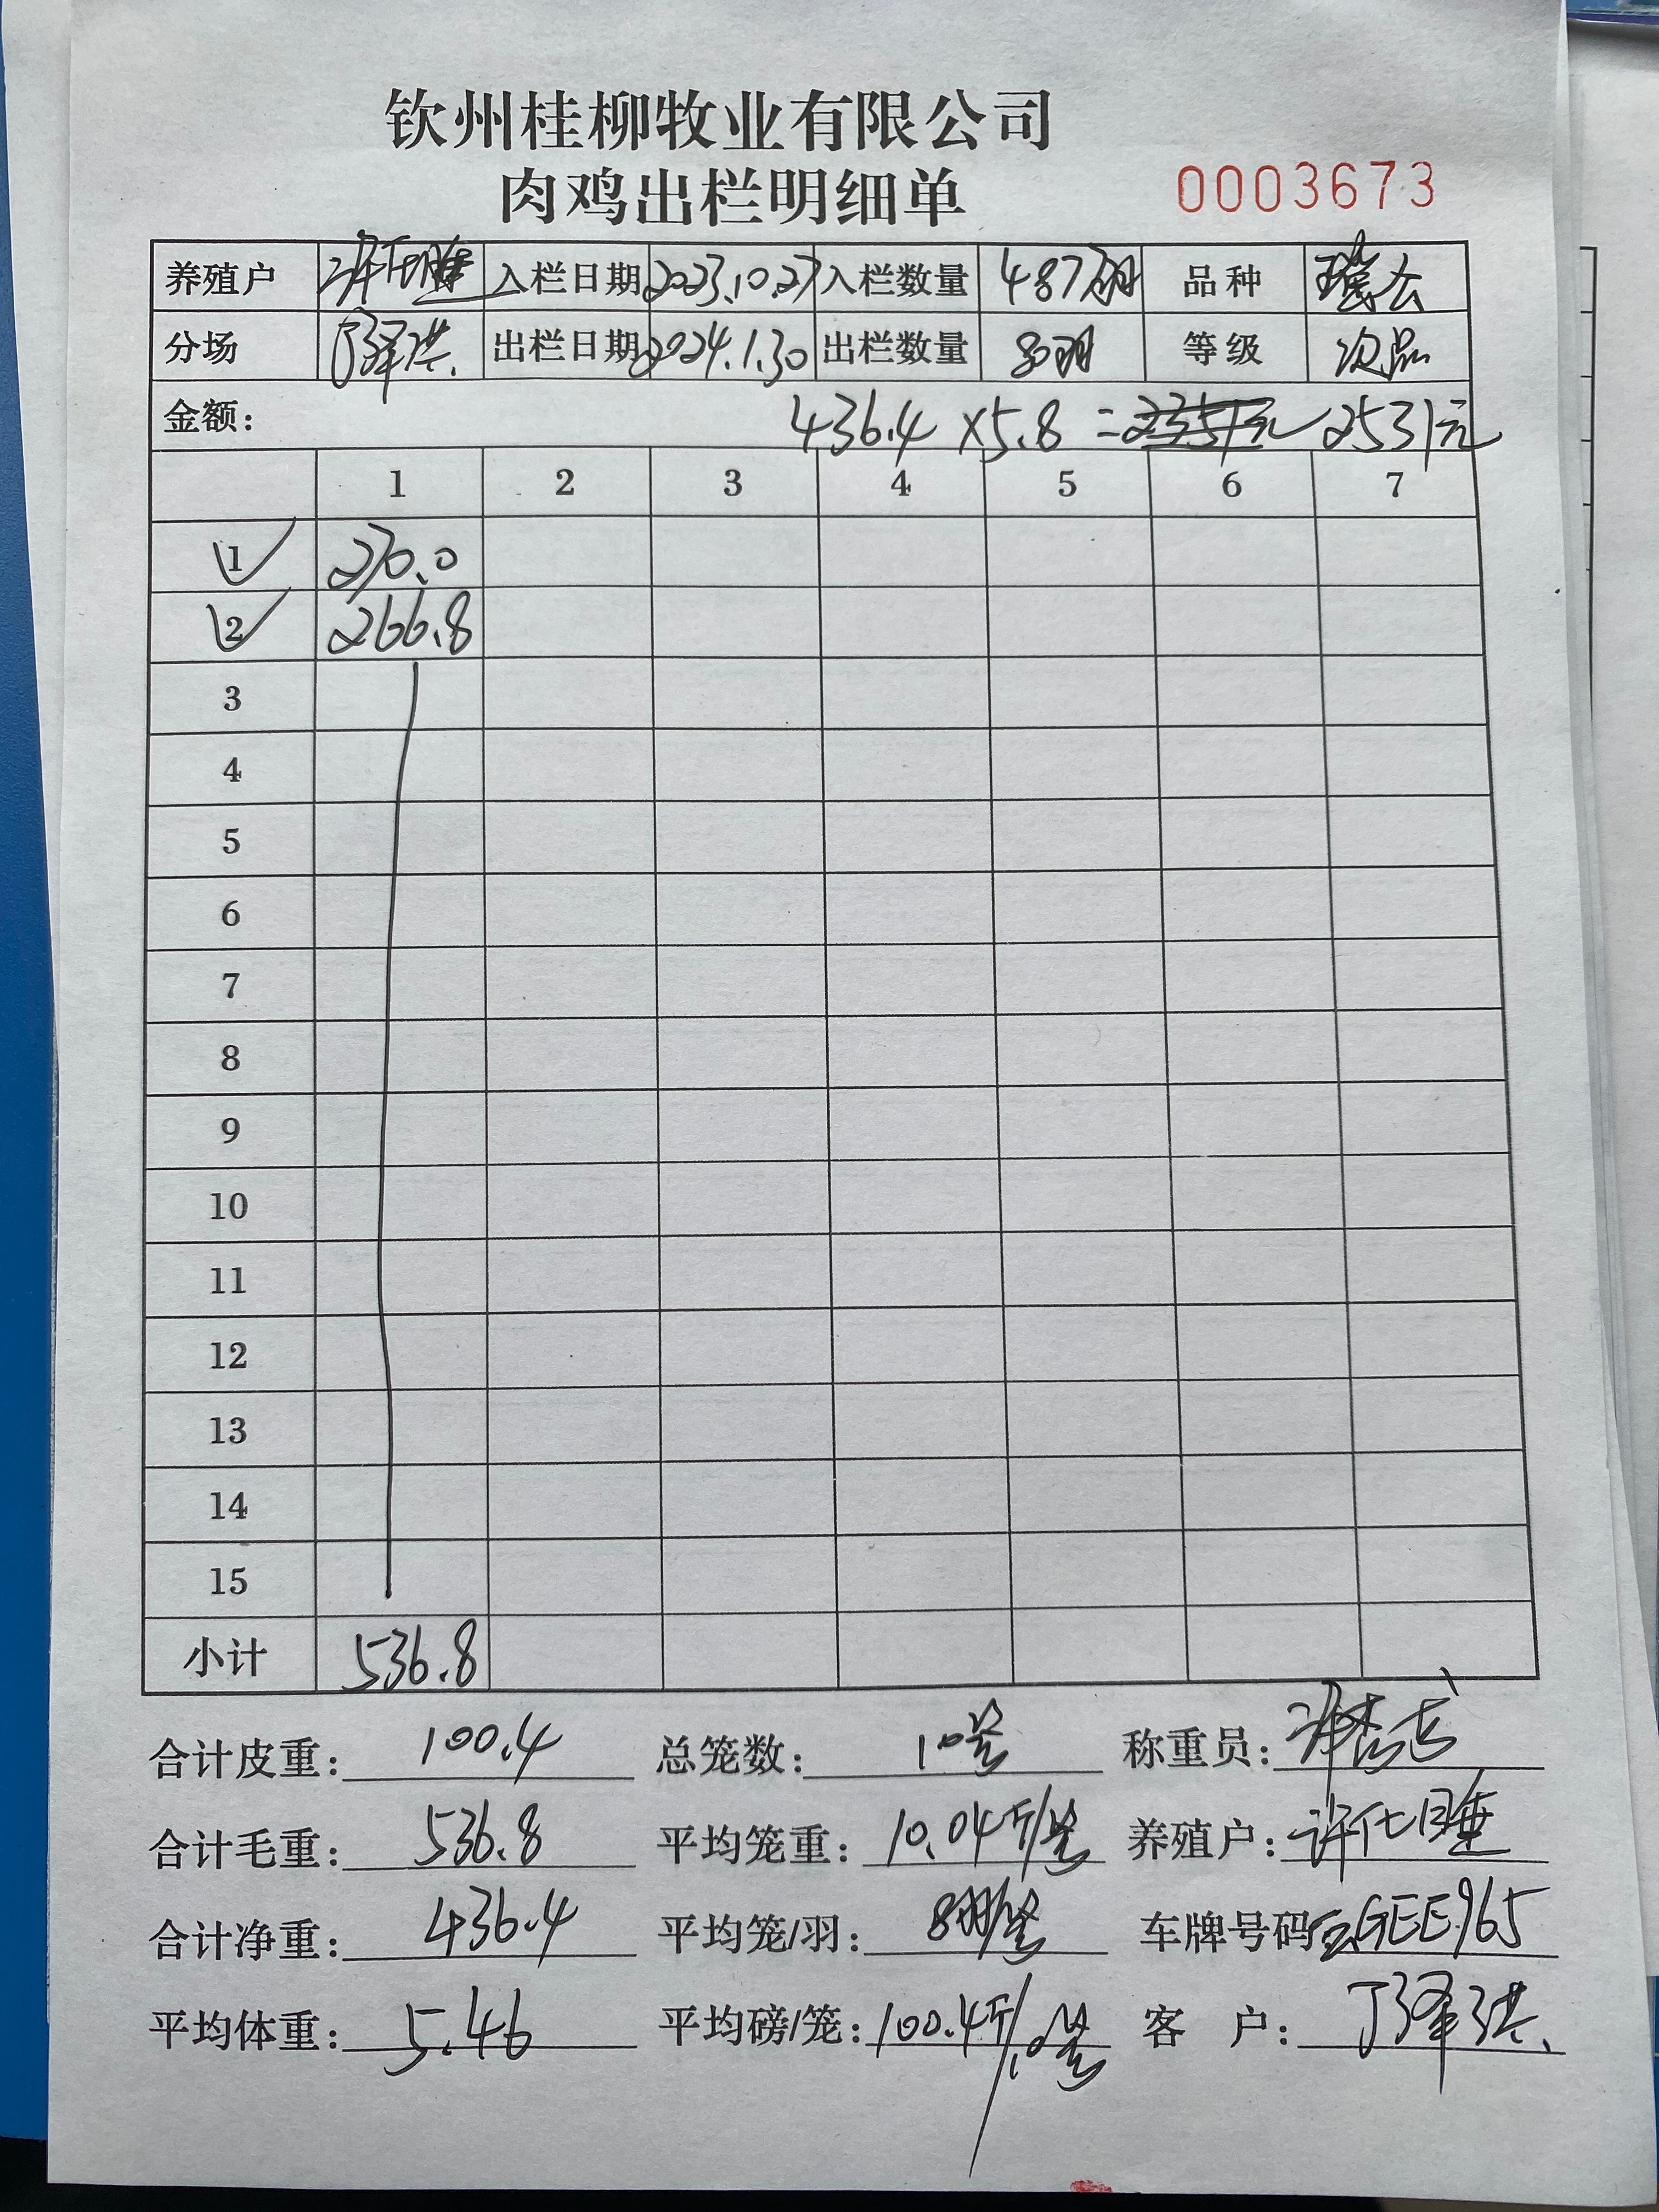 钦州桂柳牧业有限公司
肉鸡出栏明细单
0003673
养殖户 入栏日期 2023.10.27 入栏数量 487羽 品种 瑶公
分场 丁泽洪. 出栏日期 2024.1.30 出栏数量 80羽 等级 次品
金额: 436.4 ×5.8 = 2351元 2531元
1 2 3 4 5 6 7
1 270.0
2 266.8
3
4
5
6
7
8
9
10
11
12
13
14
15
小计 536.8
合计皮重: 100.4 总笼数: 10笼 称重员:
合计毛重: 536.8 平均笼重: 10.04斤/笼 养殖户: 许仕睡
合计净重: 436.4 平均笼/羽: 8羽/笼 车牌号码 GEE965
平均体重: 5.46 平均磅/笼: 100.4斤/10笼 客户: 丁泽洪.